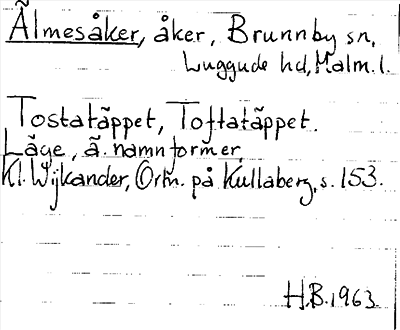 Älmesåker, åker, Brunnby sn,
Luggude hd, Malm. l.
Tostatäppet, Toftatäppet.
Läge, ä. namnformer,
Kl. Wijkander, Ortn. på Kullaberg, s. 153.
H.B. 1963